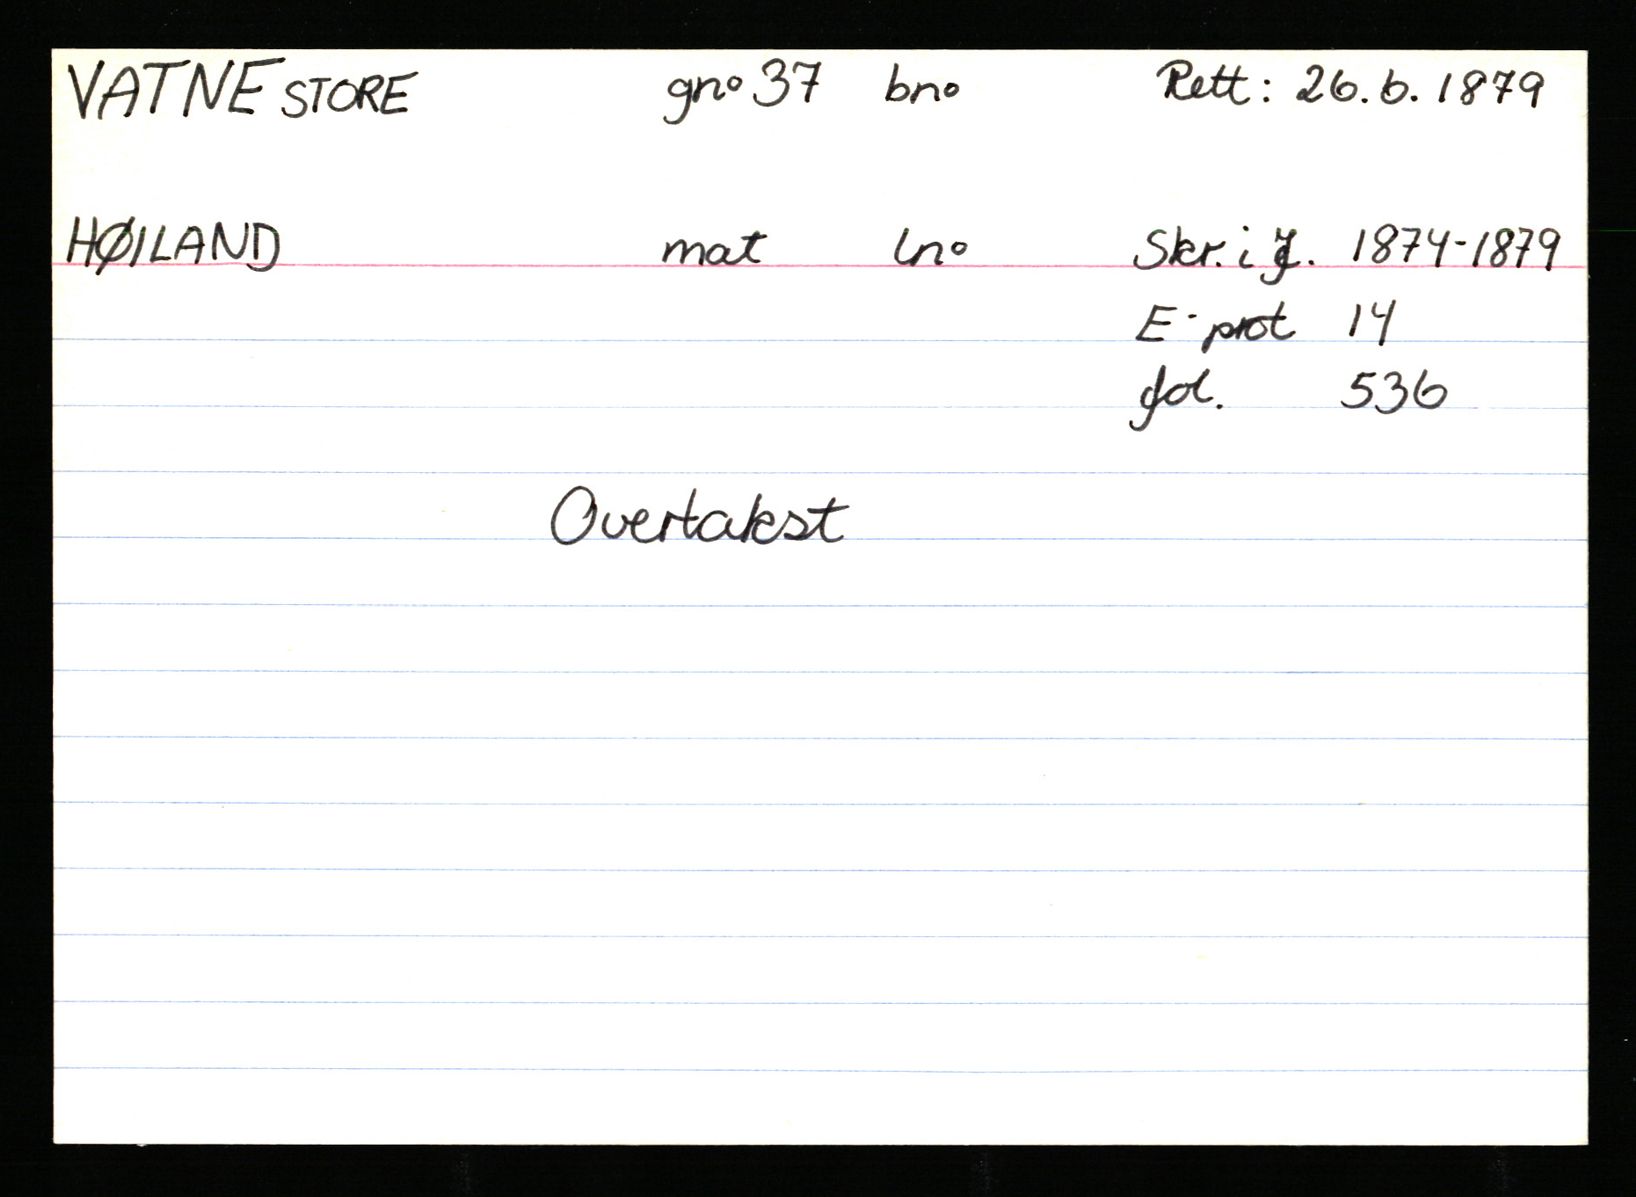 VATNE STORE gno 37 bno Rett: 26.6.1879
HØILAND mat lno Skr. i J. 1874-1879
E-prot 14
fol. 536
Overtakst